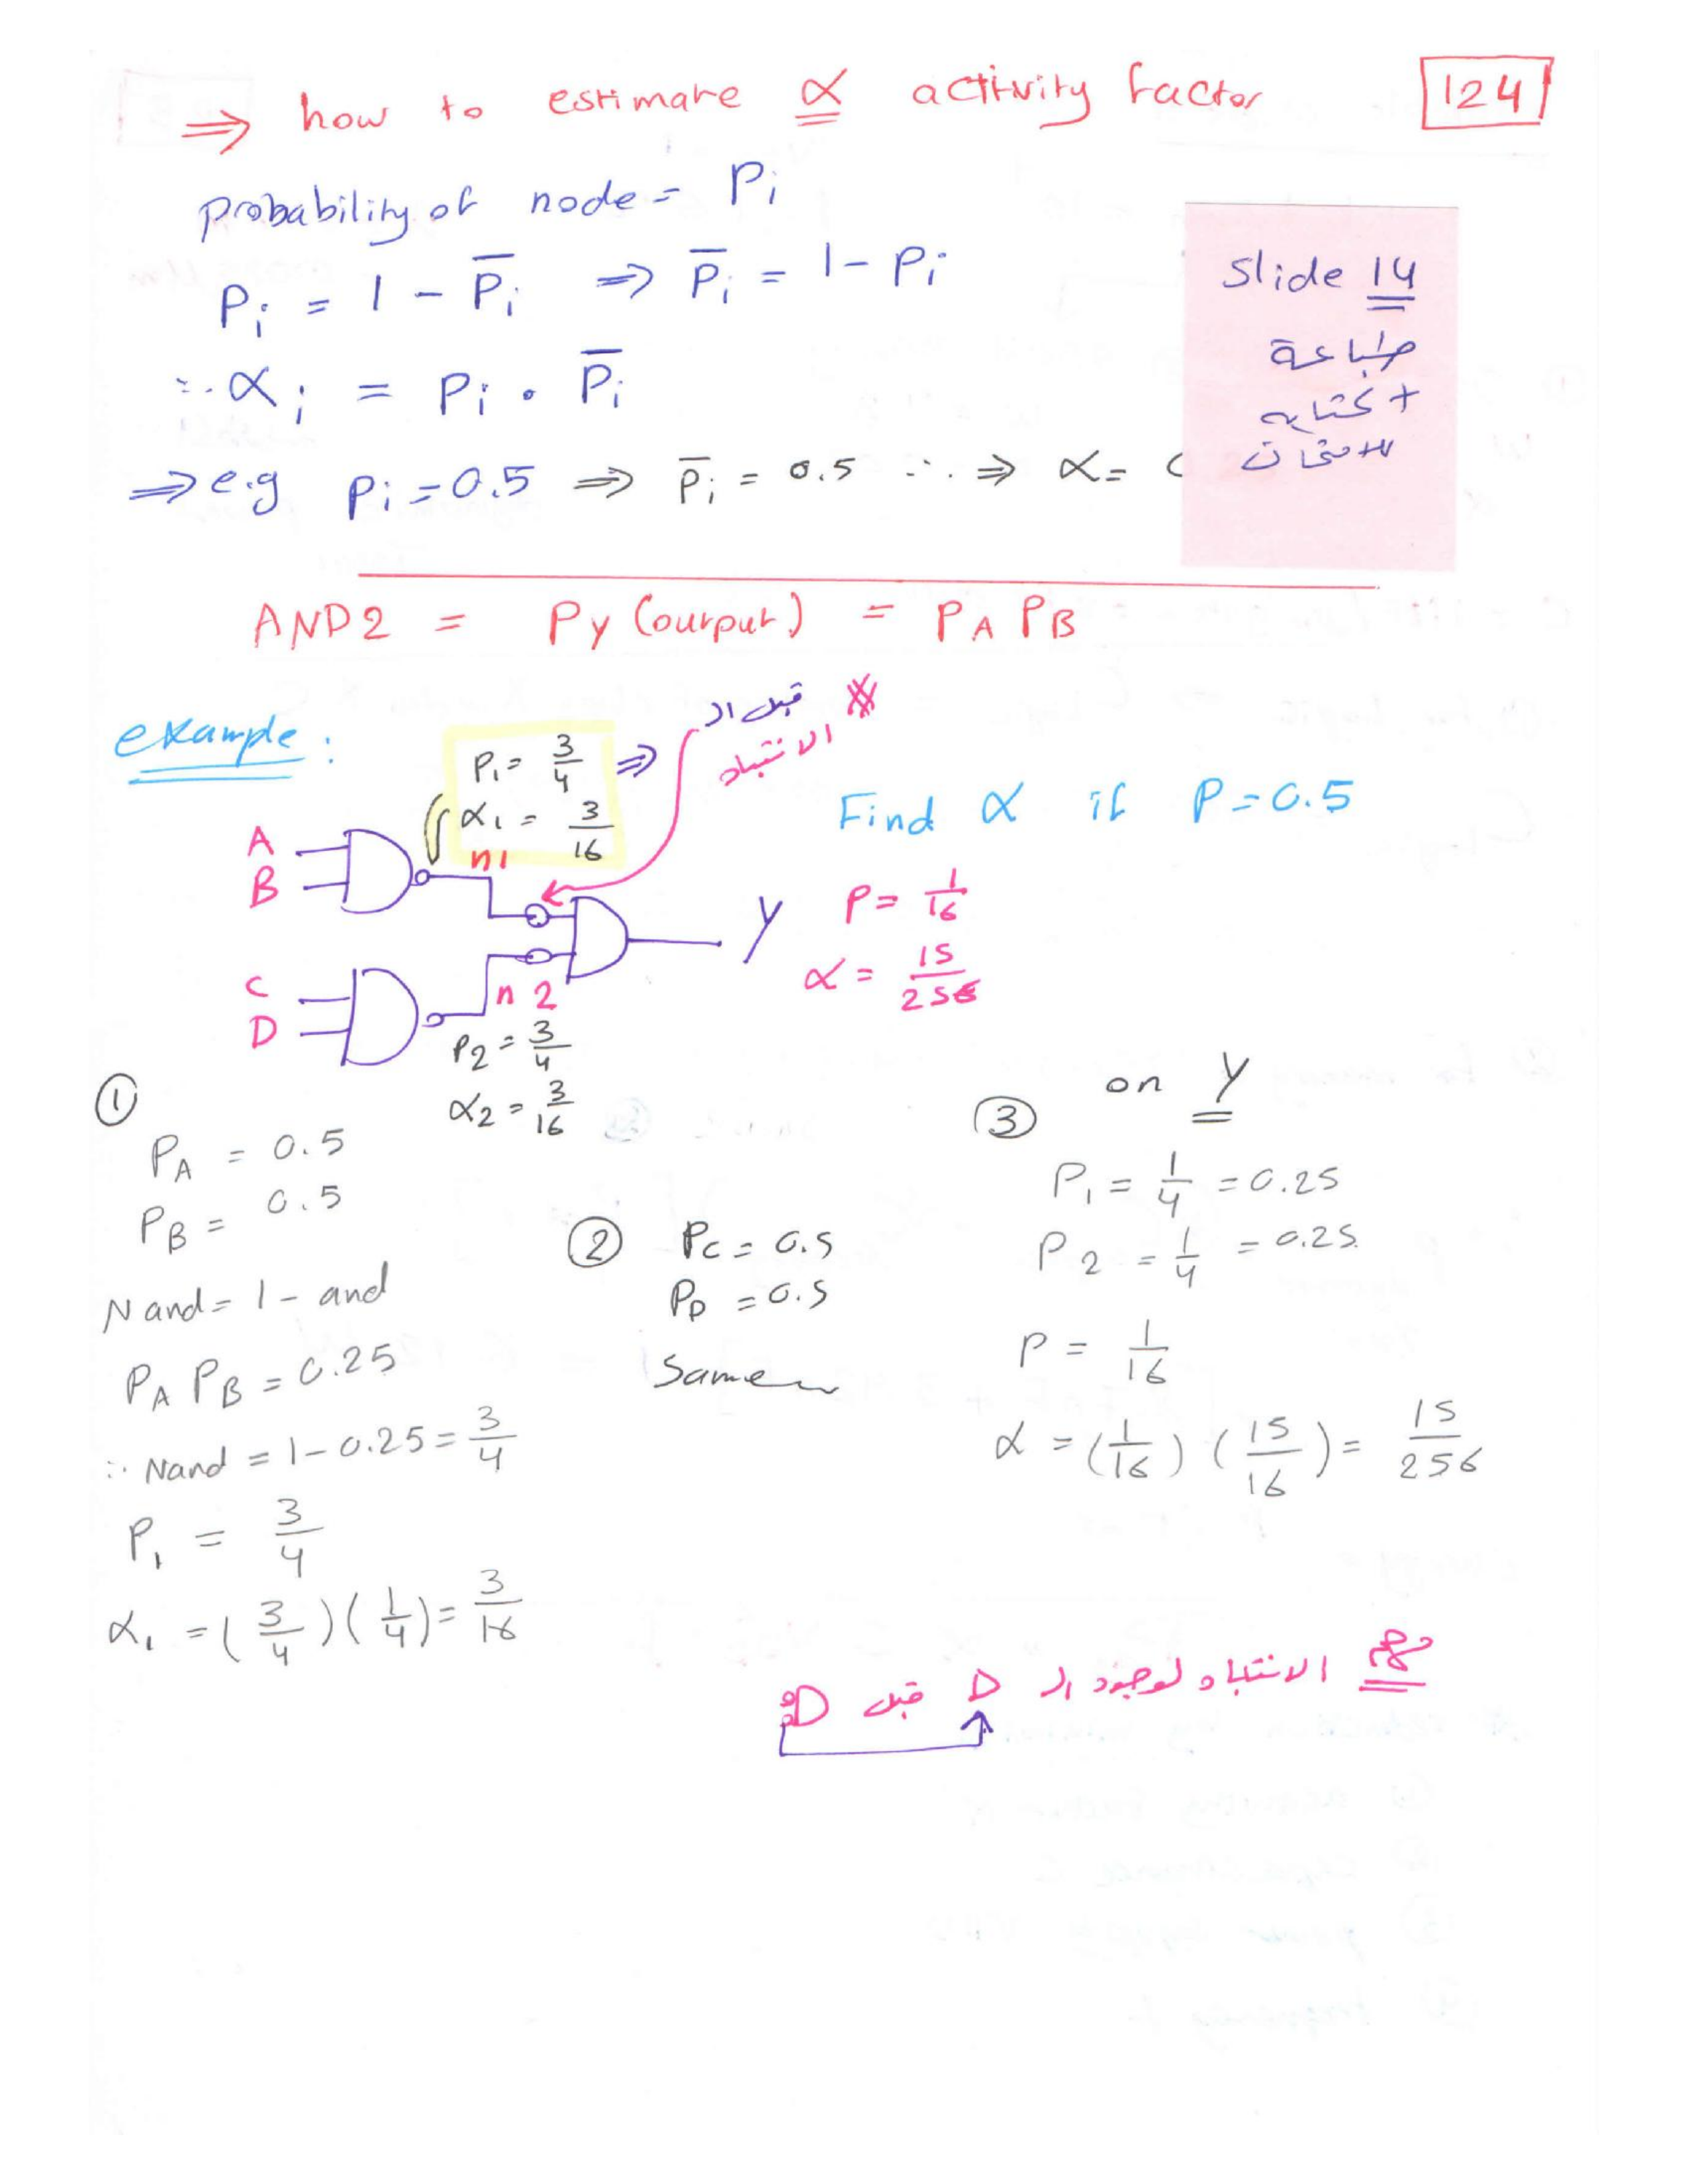 ⇒ how to estimate α activity factor
124
probability of node = Pi
Pi = 1 - P̅i ⇒ P̅i = 1 - Pi
∴ αi = Pi . P̅i
⇒ e.g Pi = 0.5 ⇒ P̅i = 0.5 ∴ ⇒ α =
Slide 14
طباعة
+ كتابه
للامتحان
AND2 = PY (output) = PA PB
example :
P1 = 3/4 ⇒
α1 = 3/16
قبل ال
الانتباه
Find α if P = 0.5
A
B
n1
C
D
n2
P2 = 3/4
α2 = 3/16
Y
P = 1/16
α = 15/256
①
PA = 0.5
PB = 0.5
Nand = 1 - and
PA PB = 0.25
∴ Nand = 1 - 0.25 = 3/4
P1 = 3/4
α1 = (3/4)(1/4) = 3/16
②
PC = 0.5
PD = 0.5
Same
③ on Y
P1 = 1/4 = 0.25
P2 = 1/4 = 0.25
P = 1/16
α = (1/16) (15/16) = 15/256
مهم الانتباه لوجود ال D قبل D